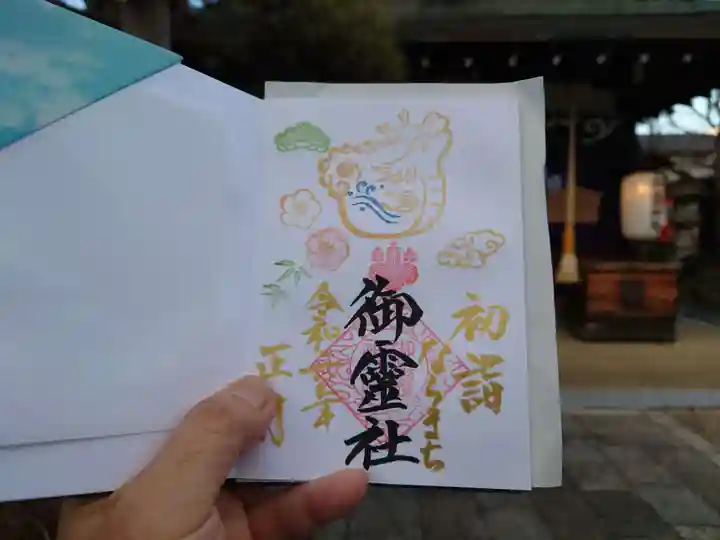 初詣
ならまち
御靈社
令和 年
正月